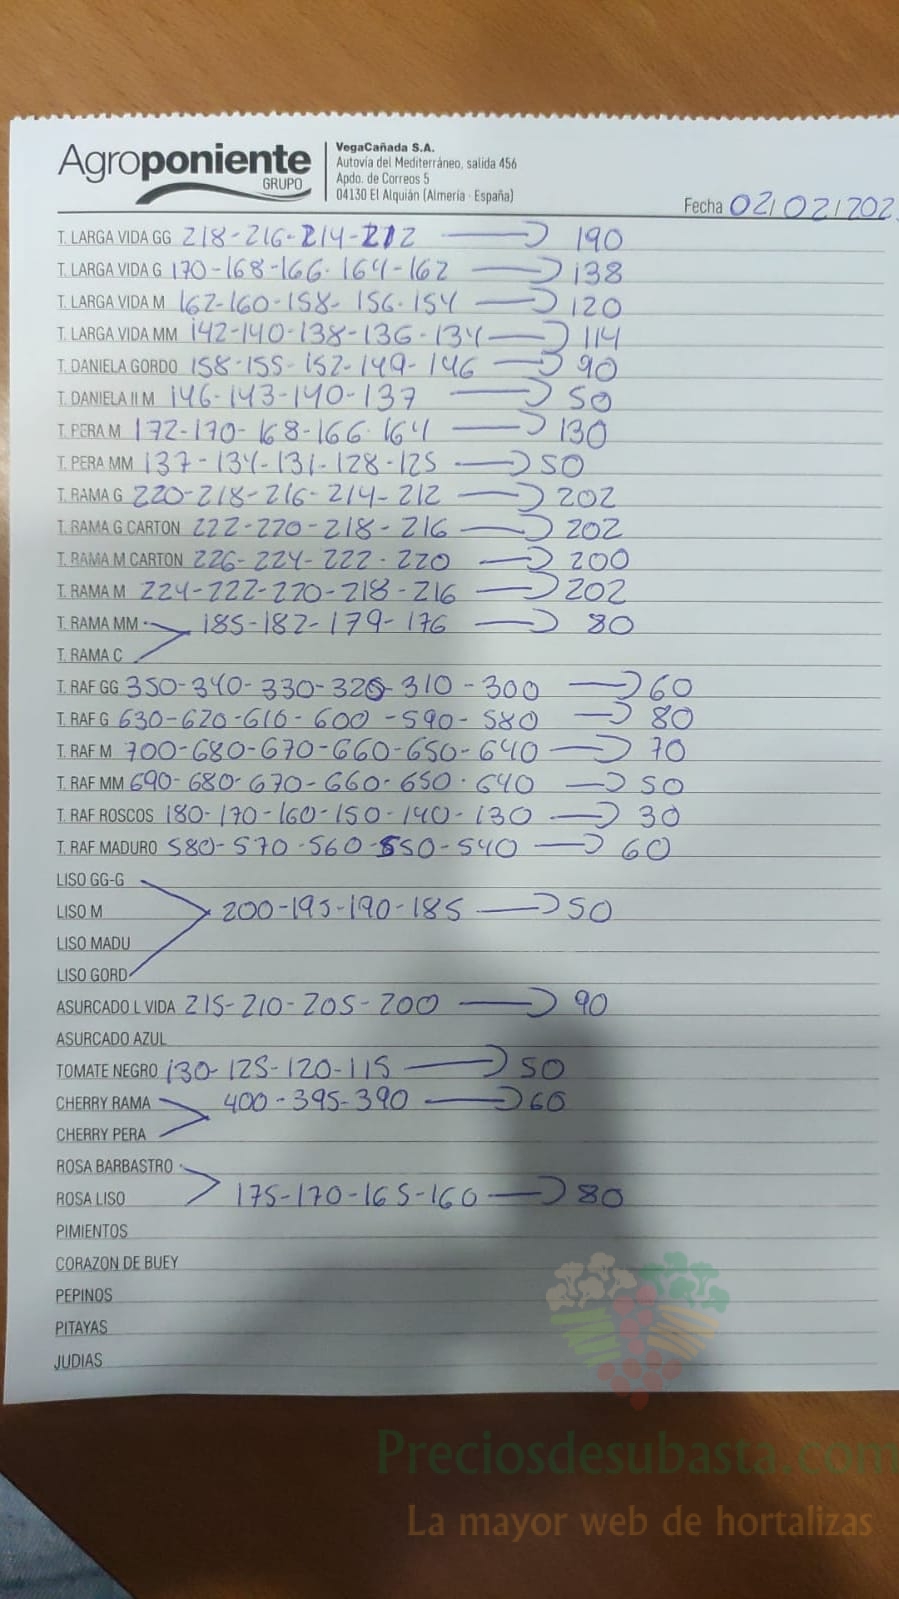 Agroponiente
GRUPO
VegaCañada S.A.
Autovía del Mediterráneo, salida 456
Apdo. de Correos 5
04130 El Alquián (Almería - España)
Fecha 02/02/202
T. LARGA VIDA GG 218-216-214-212 → 190
T. LARGA VIDA G 170-168-166-164-162 → 138
T. LARGA VIDA M 162-160-158-156-154 → 120
T. LARGA VIDA MM 142-140-138-136-134 → 114
T. DANIELA GORDO 158-155-152-149-146 → 90
T. DANIELA II M 146-143-140-137 → 50
T. PERA M 172-170-168-166-164 → 130
T. PERA MM 137-134-131-128-125 → 50
T. RAMA G 220-218-216-214-212 → 202
T. RAMA G CARTON 222-220-218-216 → 202
T. RAMA M CARTON 226-224-222-220 → 200
T. RAMA M 224-222-220-218-216 → 202
T. RAMA MM 185-182-179-176 → 80
T. RAMA C
T. RAF GG 350-340-330-320-310-300 → 60
T. RAF G 630-620-610-600-590-580 → 80
T. RAF M 700-680-670-660-650-640 → 70
T. RAF MM 690-680-670-660-650-640 → 50
T. RAF ROSCOS 180-170-160-150-140-130 → 30
T. RAF MADURO 580-570-560-550-540 → 60
LISO GG-G
LISO M 200-195-190-185 → 50
LISO MADU
LISO GORD
ASURCADO L VIDA 215-210-205-200 → 90
ASURCADO AZUL
TOMATE NEGRO 130-125-120-115 → 50
CHERRY RAMA 400-395-390 → 60
CHERRY PERA
ROSA BARBASTRO
ROSA LISO 175-170-165-160 → 80
PIMIENTOS
CORAZON DE BUEY
PEPINOS
PITAYAS
JUDIAS
Preciosdesubasta.com
La mayor web de hortalizas